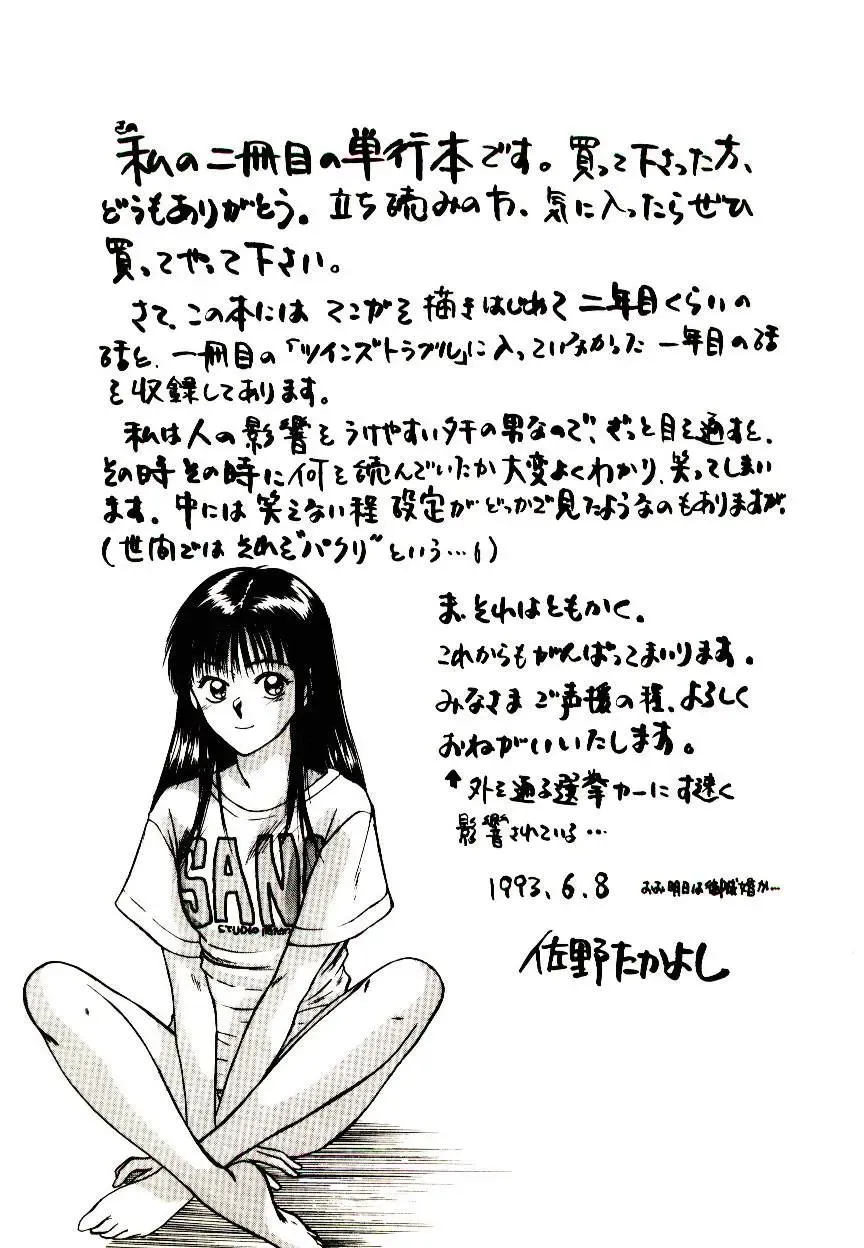 さの
私の二冊目の単行本です。買って下さった方、
どうもありがとう。立ち読みの方、気に入ったらぜひ
買ってやって下さい。
さて、この本にはマンガを描きはじめて二年目くらいの
話と、一冊目の「ツインズトラブル」に入っていなかった一年目の話
を収録してあります。
私は人の影響をうけやすいタチの男なので、ずっと目を通すと、
その時その時に何を読んでいたか大変よくわかり、笑ってしまい
ます。中には笑えない程設定がどっかで見たようなのもありますが、
(世間ではそれを"パクリ"という…!)
ま、それはともかく。
これからもがんばってまいります。
みなさまご声援の程、よろしく
おねがいいたします。
↑外を通る選挙カーにす速く
影響されている…
1993.6.8 おお明日は御成婚か…
佐野たかよし
SAN
STUDIO